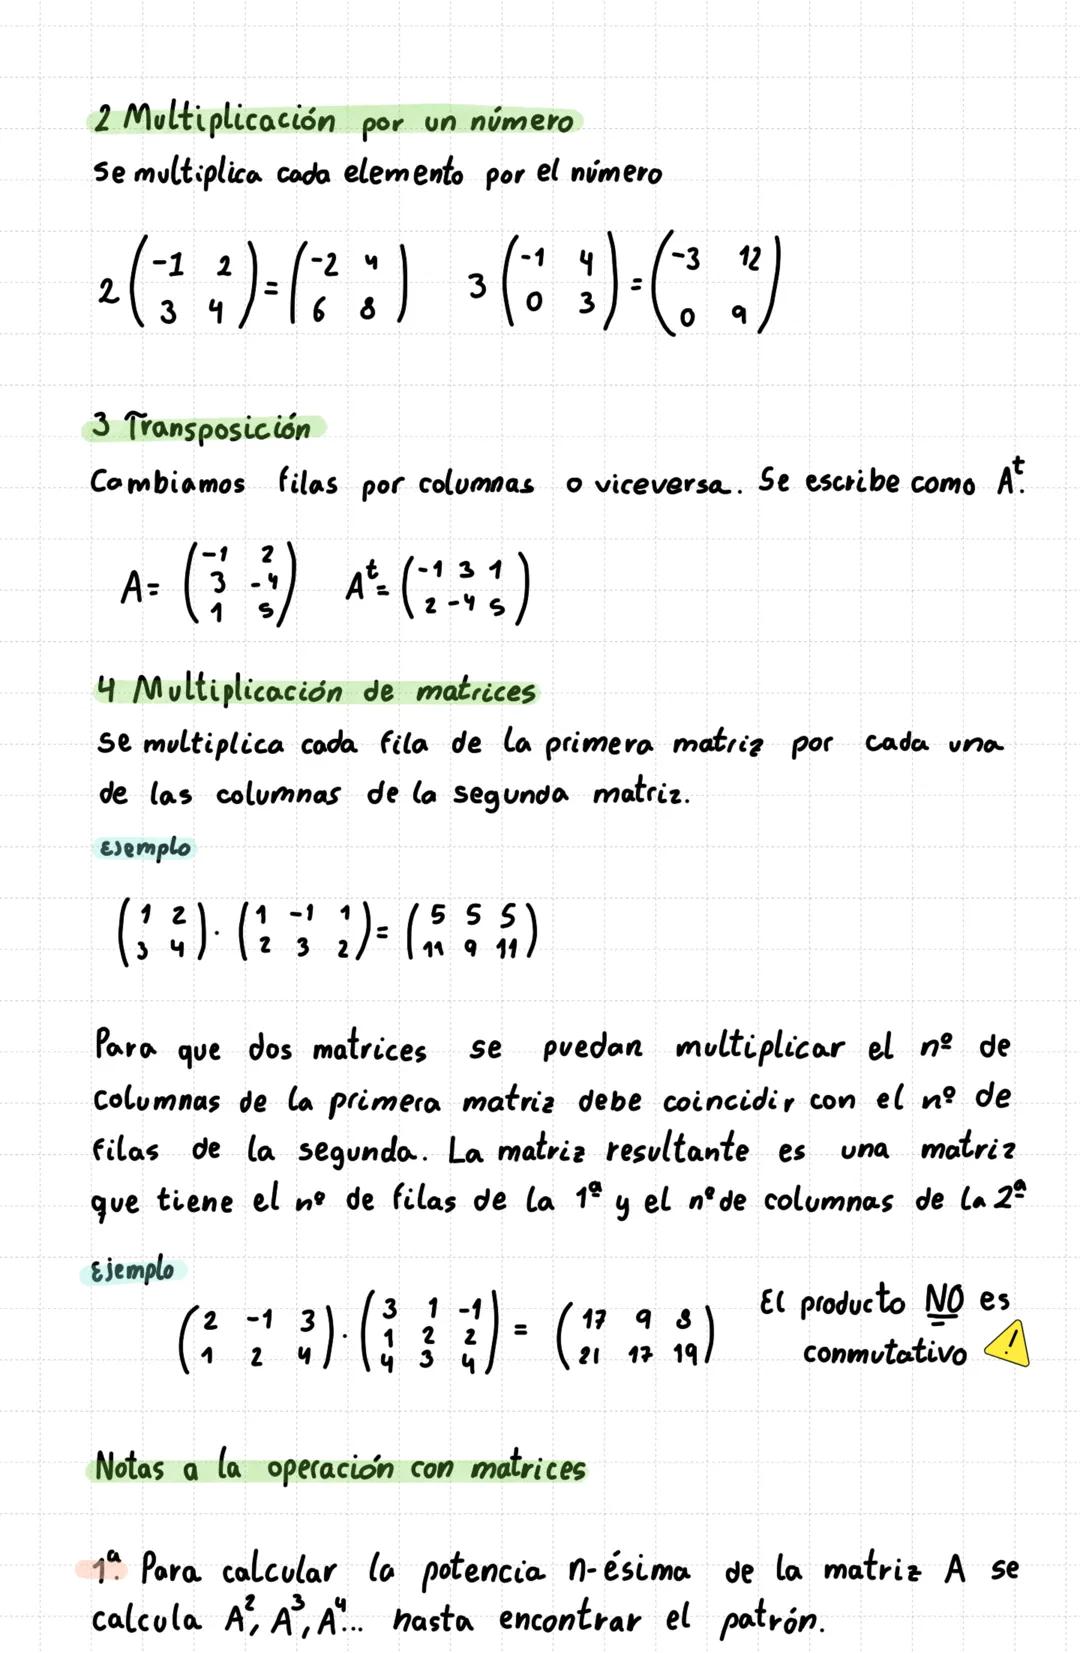 2 Multiplicación por un número
Se multiplica cada elemento por el número
2 (-1 2) = (-2 4) 3 (-1 4) = (-3 12)
(3 4) (6 8) (0 3) (0 9)
3 Transposición
Cambiamos filas por columnas o viceversa. Se escribe como Aᵗ.
A= (-1 2) Aᵗ= (-1 3 1)
(3 -4) (2 -4 5)
(1 5)
4 Multiplicación de matrices
Se multiplica cada fila de la primera matriz por cada una
de las columnas de la segunda matriz.
Ejemplo
(1 2) · (1 -1 1) = (5 5 5)
(3 4) (2 3 2) (11 9 11)
Para que dos matrices se puedan multiplicar el nº de
columnas de la primera matriz debe coincidir con el nº de
filas de la segunda. La matriz resultante es una matriz
que tiene el nº de filas de la 1ª y el nº de columnas de la 2ª
Ejemplo
(2 -1 3) · (3 1 -1) = (17 9 8) El producto NO es
(1 2 4) (1 2 2) (21 17 19) conmutativo
(4 3 4)
Notas a la operación con matrices
1ª. Para calcular la potencia n-ésima de la matriz A se
calcula A², A³, A⁴... hasta encontrar el patrón.